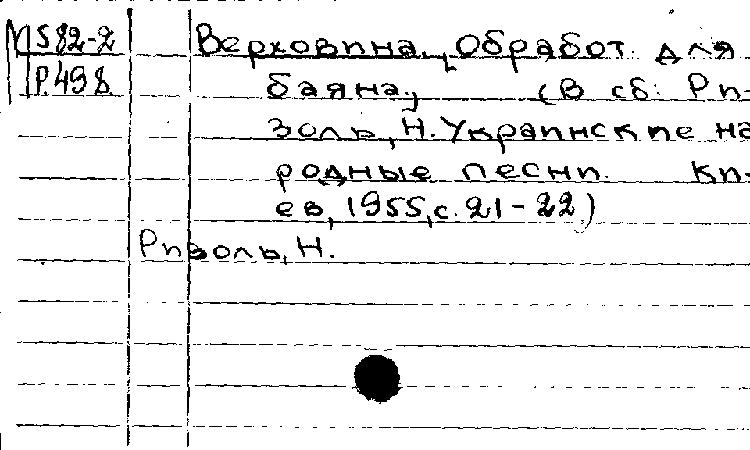 М S 82-2
Р.498
Верховина. [Обработ. для
баяна.] (В сб: Ри-
золь, Н. Украинские на
родные песни. Ки-
ев, 1955, с. 21-22)
Ризоль, Н.